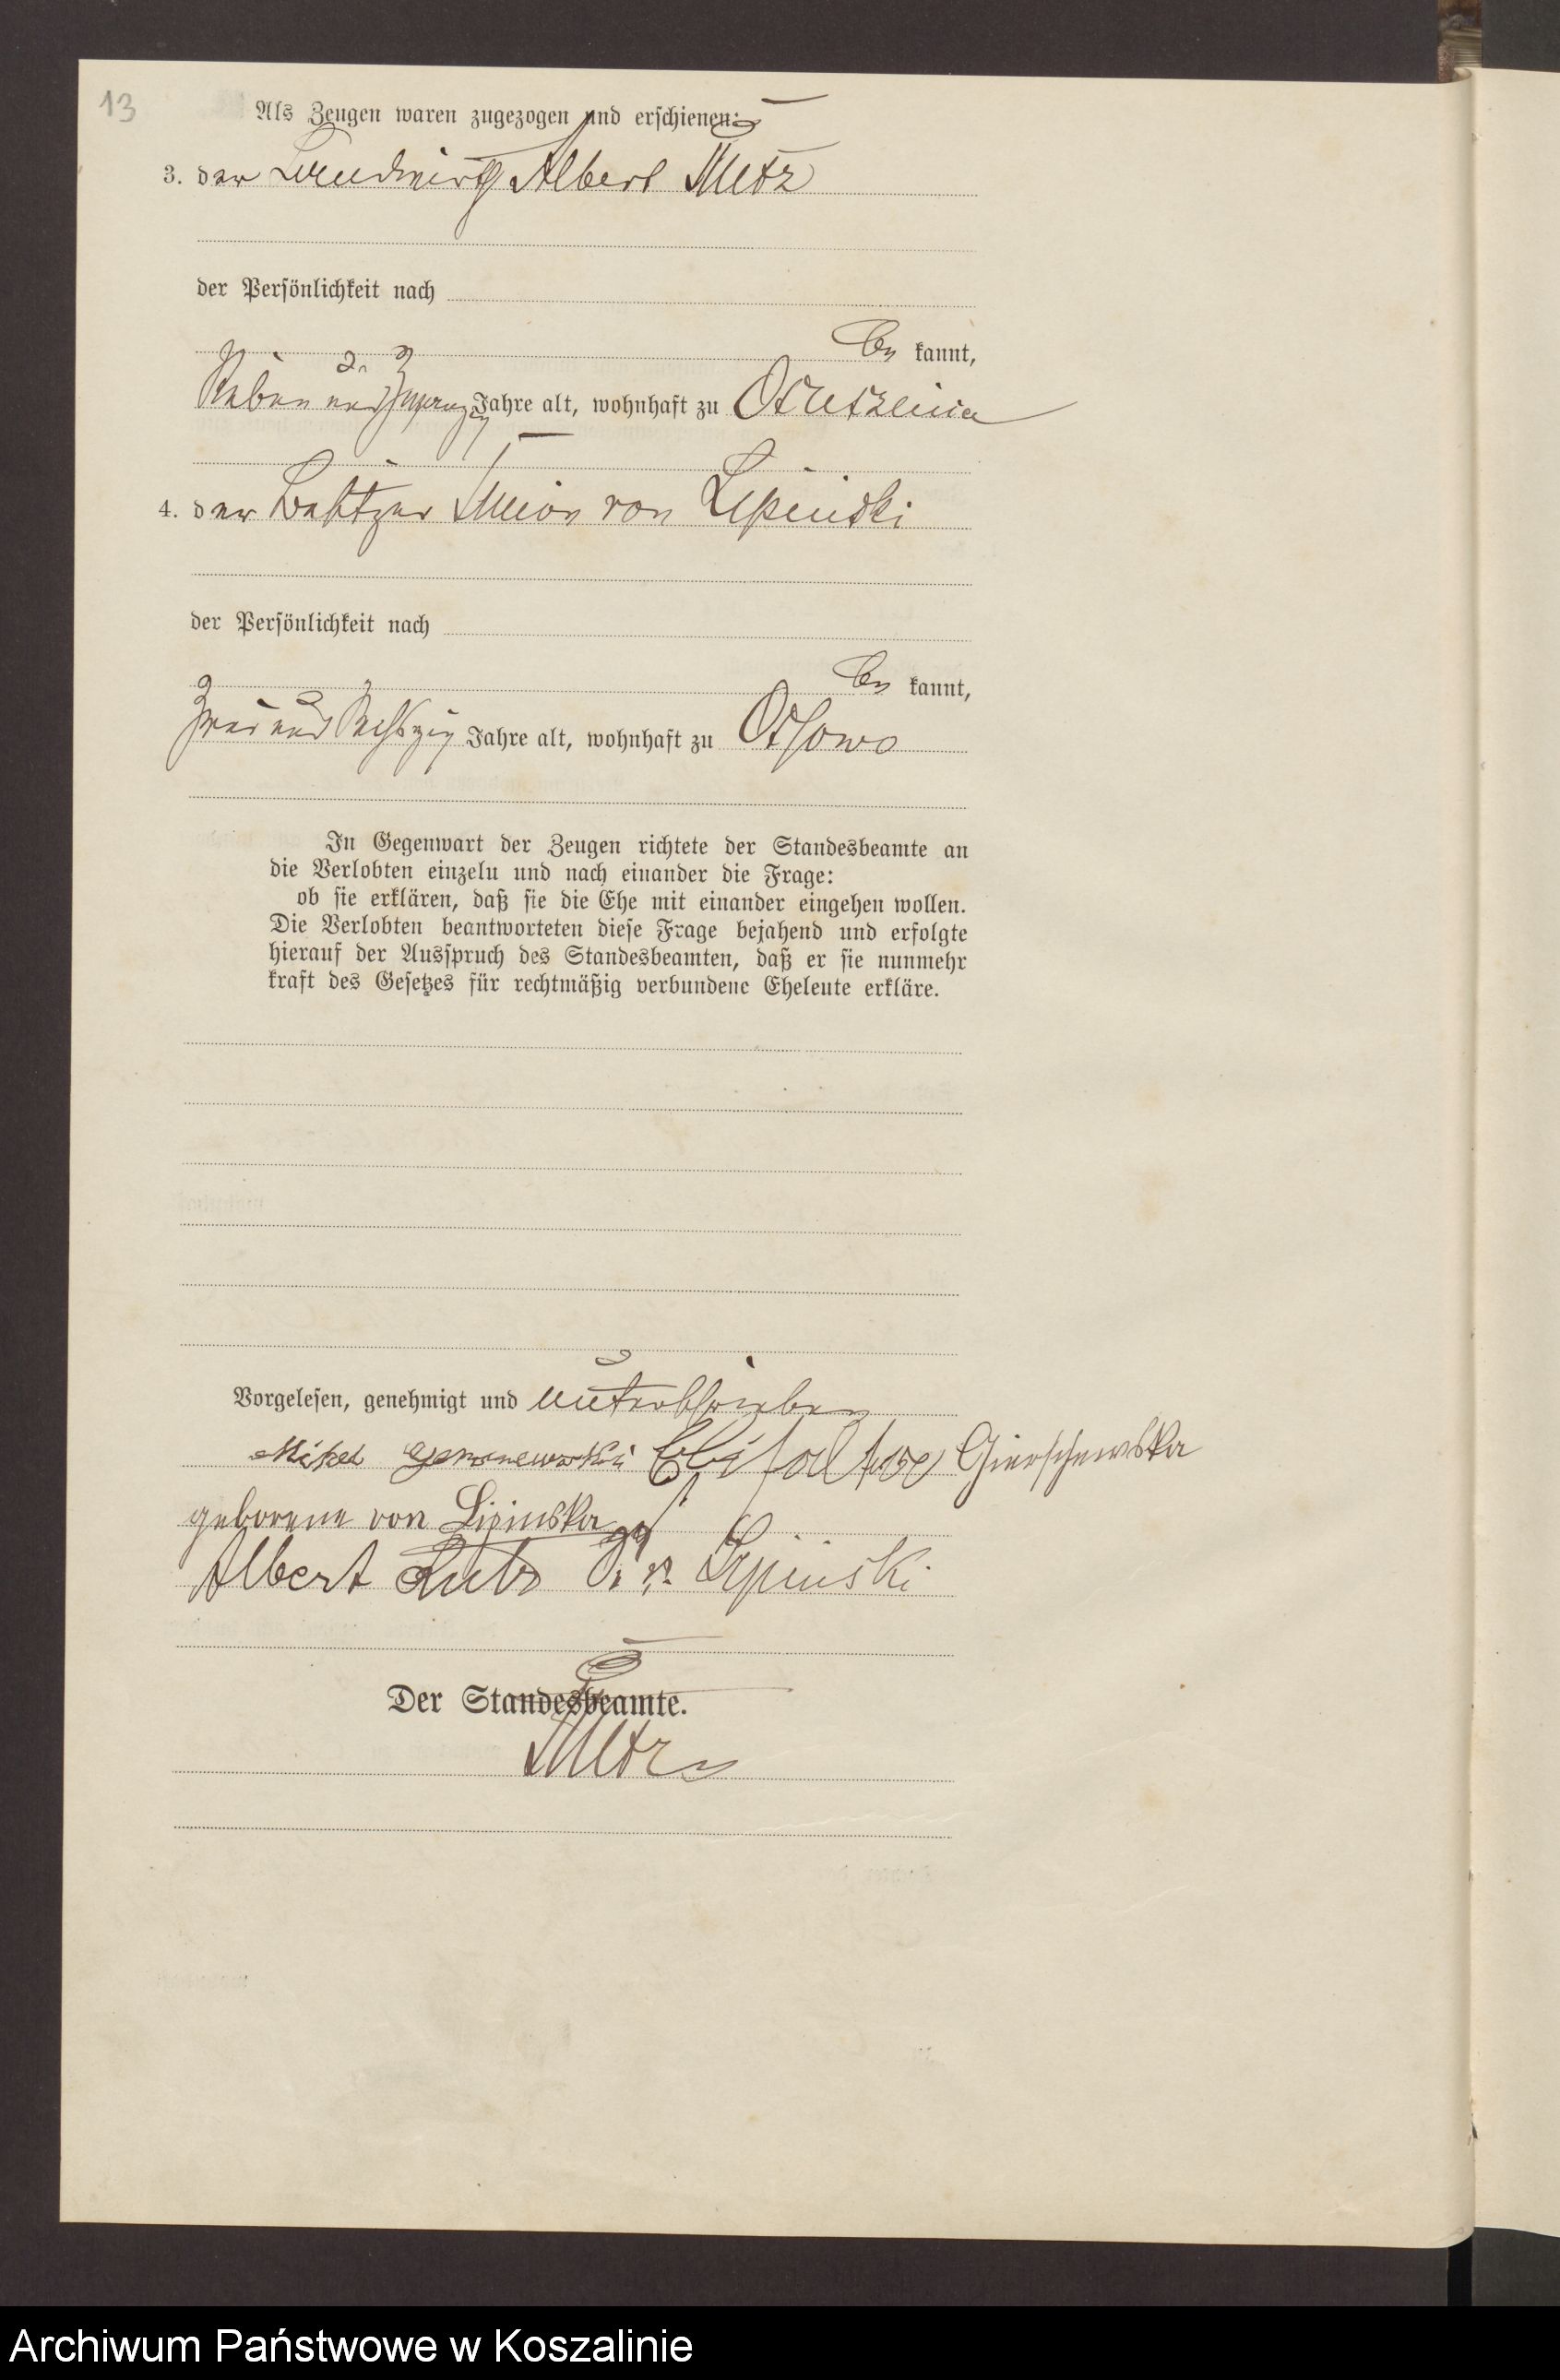 13
Als Zeugen waren zugezogen und erschienen:
3. der Landwirth Albert
der Persönlichkeit nach
be kannt,
Sieben und zwanzig Jahre alt, wohnhaft zu
4. der Besitzer von Lipinski
der Persönlichkeit nach
be kannt,
zwei und sechszig Jahre alt, wohnhaft zu
In Gegenwart der Zeugen richtete der Standesbeamte an
die Verlobten einzeln und nach einander die Frage:
ob sie erklären, daß sie die Ehe mit einander eingehen wollen.
Die Verlobten beantworteten diese Frage bejahend und erfolgte
hierauf der Ausspruch des Standesbeamten, daß er sie nunmehr
kraft des Gesetzes für rechtmäßig verbundene Eheleute erkläre.
Vorgelesen, genehmigt und unterschrieben
Gierschewska
geborene von Lipinska
Albert v. Lipinski
Der Standesbeamte.
Archiwum Państwowe w Koszalinie